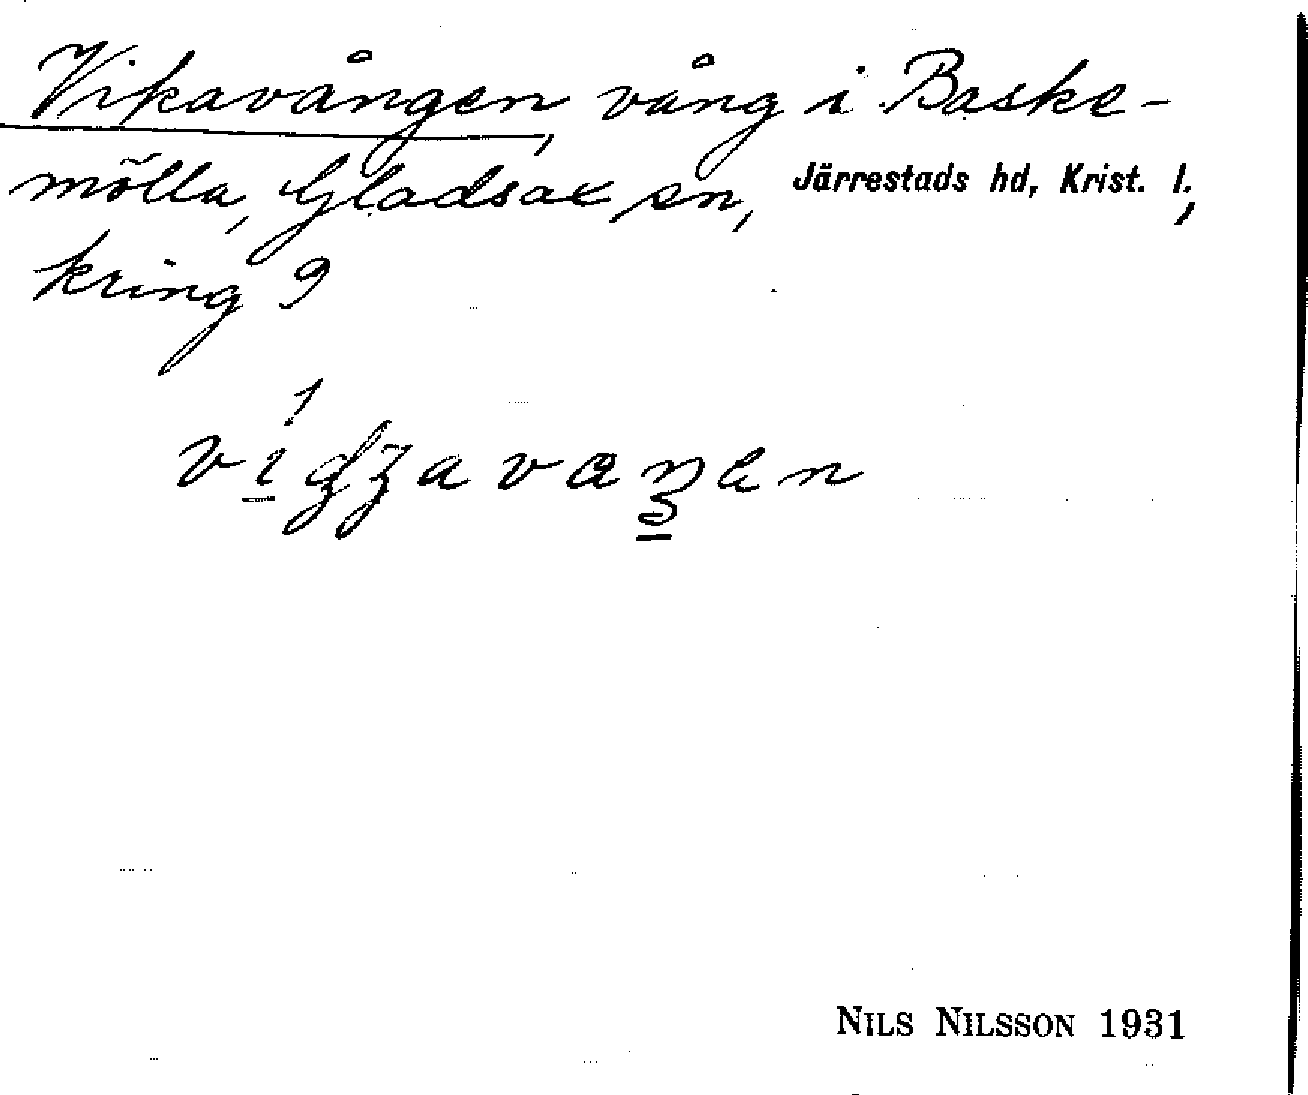 Vikavången, vång i Baske-
mölla, Gladsax sn, Järrestads hd, Krist. l.,
kring 9
NILS NILSSON 1931